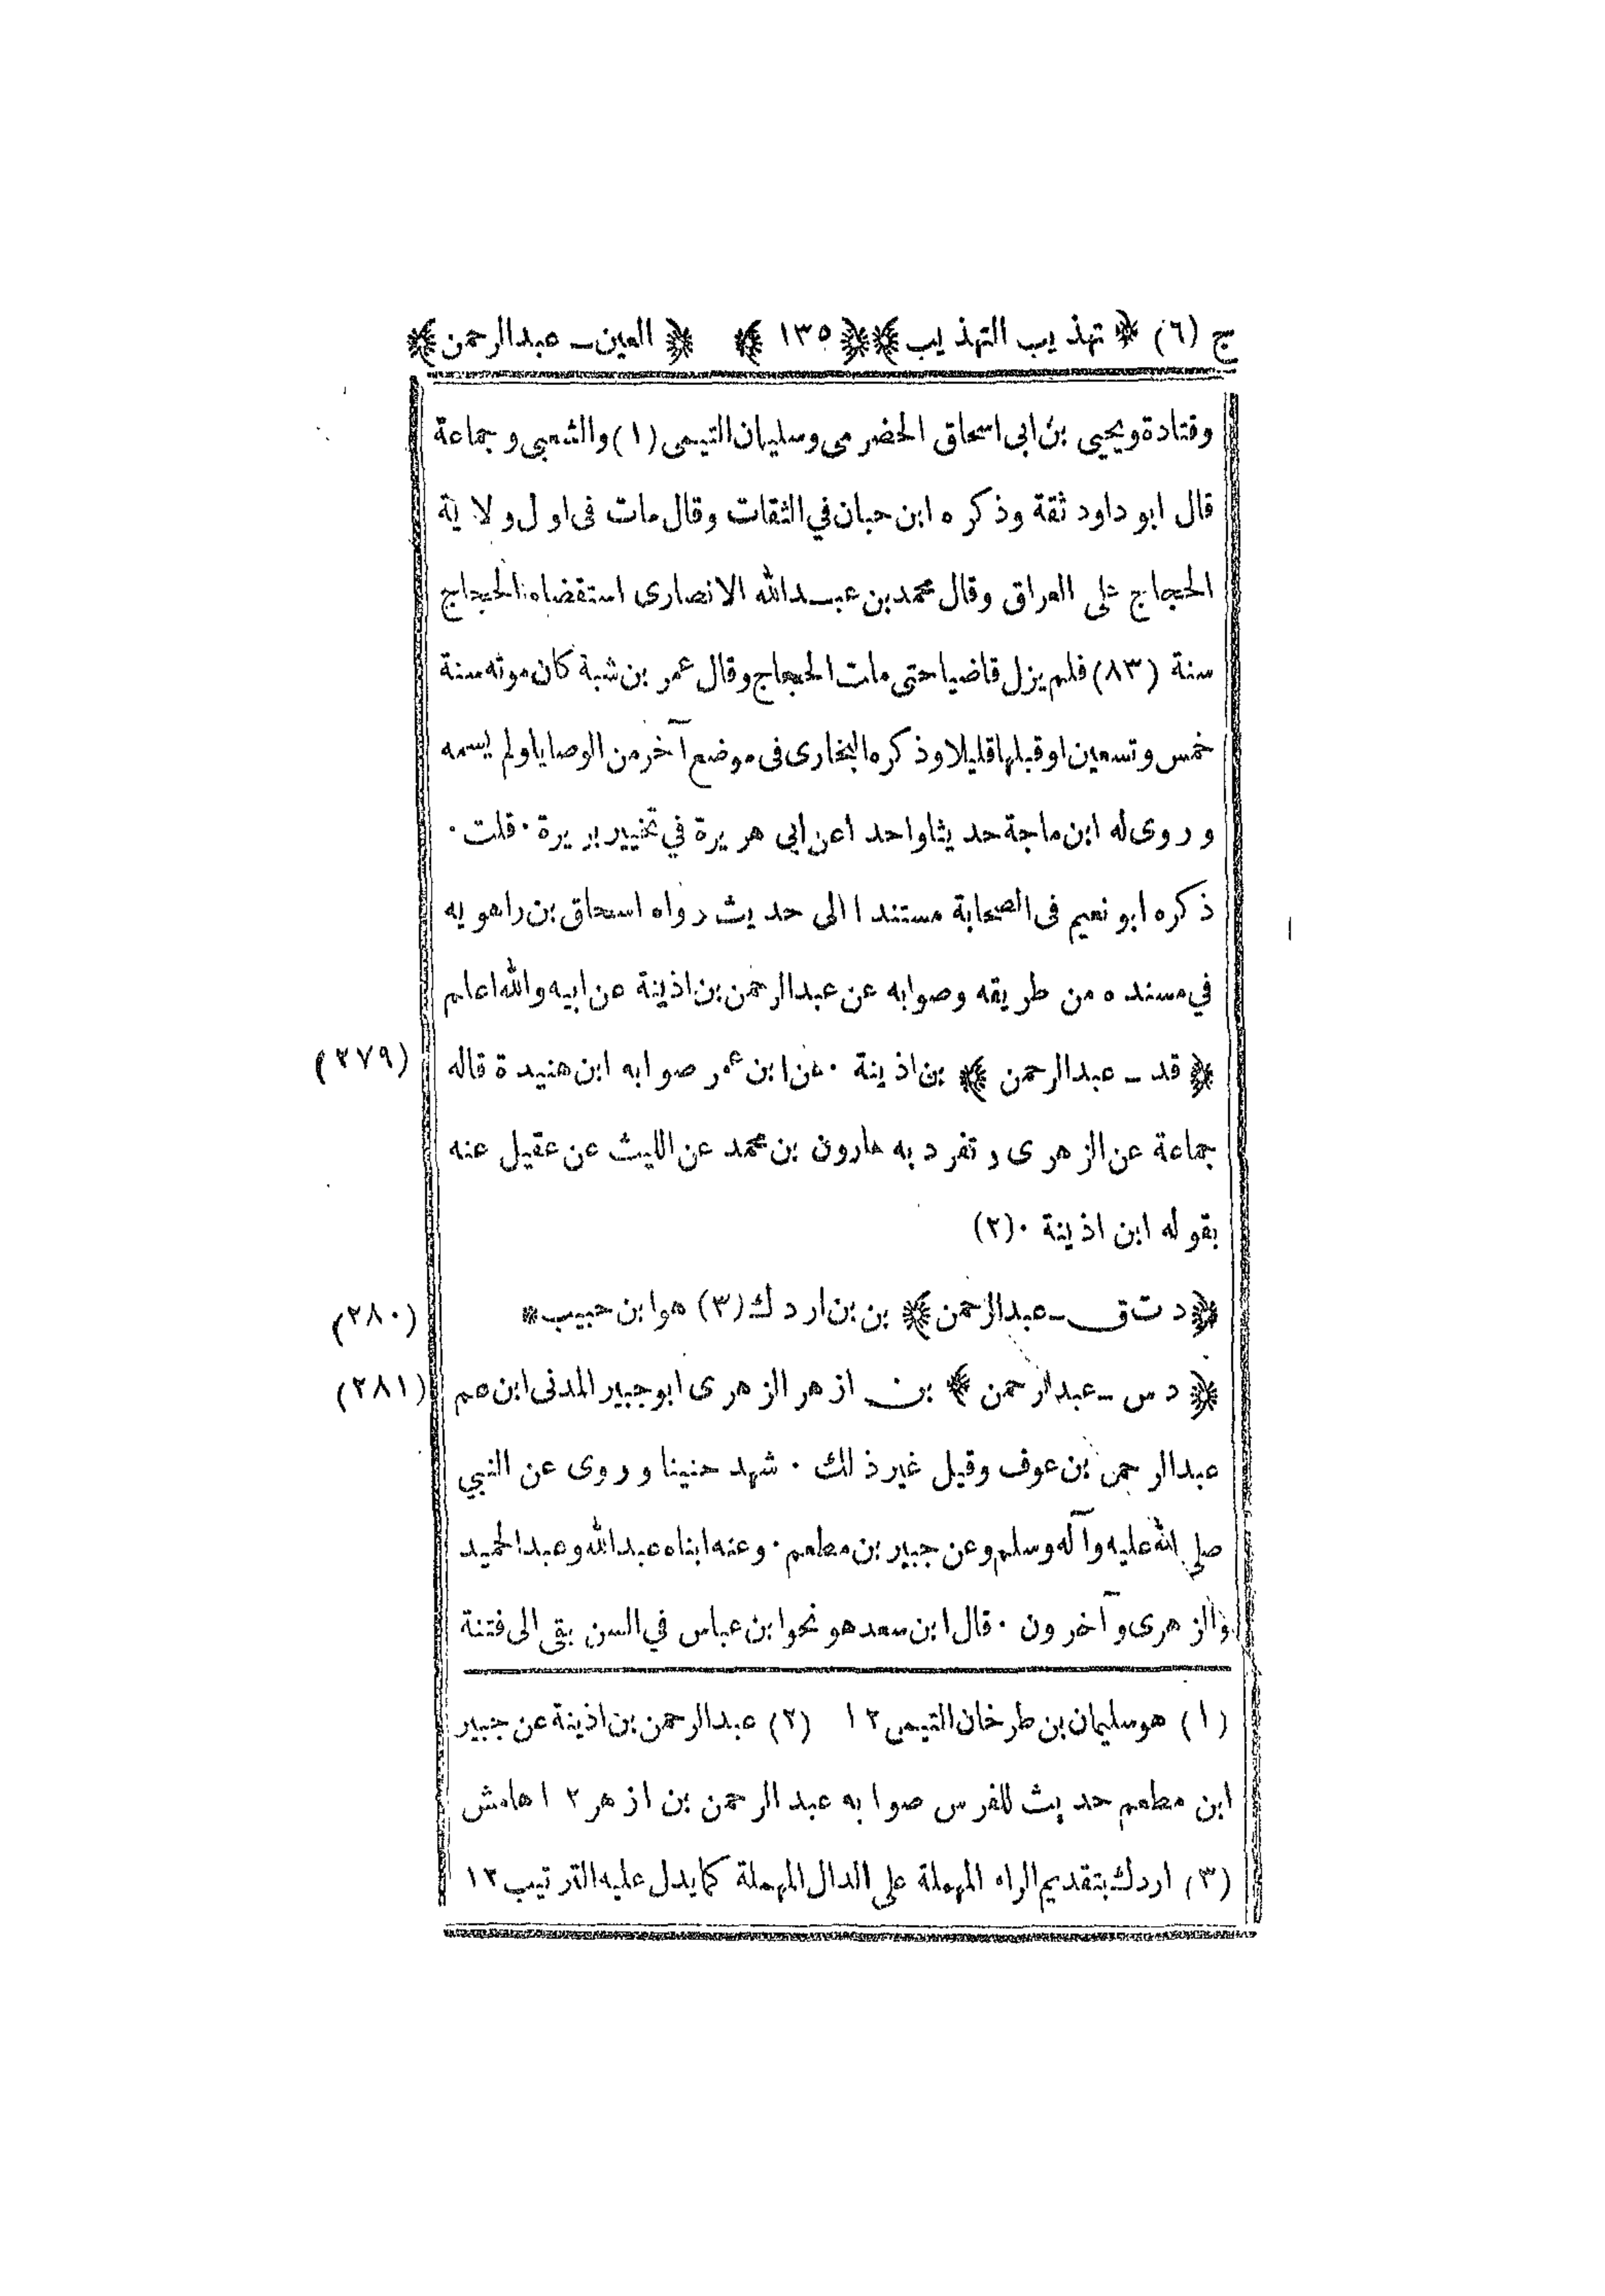 ج (٦) ﴿ تهذيب التهذيب ﴾ ﴿ ١٣٥ ﴾ ﴿ العين - عبدالرحمن ﴾
وقتادة ويحيى بن ابى اسحاق الحضرمى وسليمان التيمى (١) والشعبى وجماعة
قال ابو داود ثقة وذكره ابن حبان في الثقات وقال مات فى اول ولاية
الحجاج على العراق وقال محمد بن عبد الله الانصارى استقضاه الحجاج
سنة (٨٣) فلم يزل قاضيا حتى مات الحجاج وقال عمر بن شبة كان موته سنة
خمس وتسعين او قبلها قليلا وذكره البخارى فى موضع آخر من الوصايا ولم يسمه
وروى له ابن ماجة حديثا واحدا عن ابى هريرة في تخيير بريرة · قلت ·
ذكره ابو نعيم فى الصحابة مستندا الى حديث رواه اسحاق بن راهويه
في مسنده من طريقه وصوابه عن عبدالرحمن بن اذينة عن ابيه والله اعلم
﴿ قد - عبدالرحمن ﴾ بن اذينة · عن ابن عمر صوابه ابن هنيدة قاله (٢٧٩)
جماعة عن الزهرى وتفرد به هارون بن محمد عن الليث عن عقيل عنه
بقوله ابن اذينة · (٢)
﴿ د ت ق - عبدالرحمن ﴾ بن بن اردك (٣) هو ابن حبيب * (٢٨٠)
﴿ د س - عبدالرحمن ﴾ بن ازهر الزهرى ابو جبير المدنى ابن عم (٢٨١)
عبدالرحمن بن عوف وقيل غير ذلك · شهد حنينا وروى عن النبي
صلى الله عليه وآله وسلم وعن جبير بن مطعم · وعنه ابناه عبدالله وعبدالحميد
والزهرى وآخرون · قال ابن سعد هو نحو ابن عباس في السن بقى الى فتنة
(١) هو سليمان بن طرخان التيمى ١٢ (٢) عبدالرحمن بن اذينة عن جبير
ابن مطعم حديث للفرس صوابه عبدالرحمن بن ازهر ١٢ هامش
(٣) اردك بتقديم الراء المهملة على الدال المهملة كما يدل عليه الترتيب ١٢